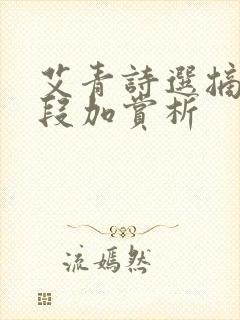 艾青詩選摘
段加賞析
流嫣然